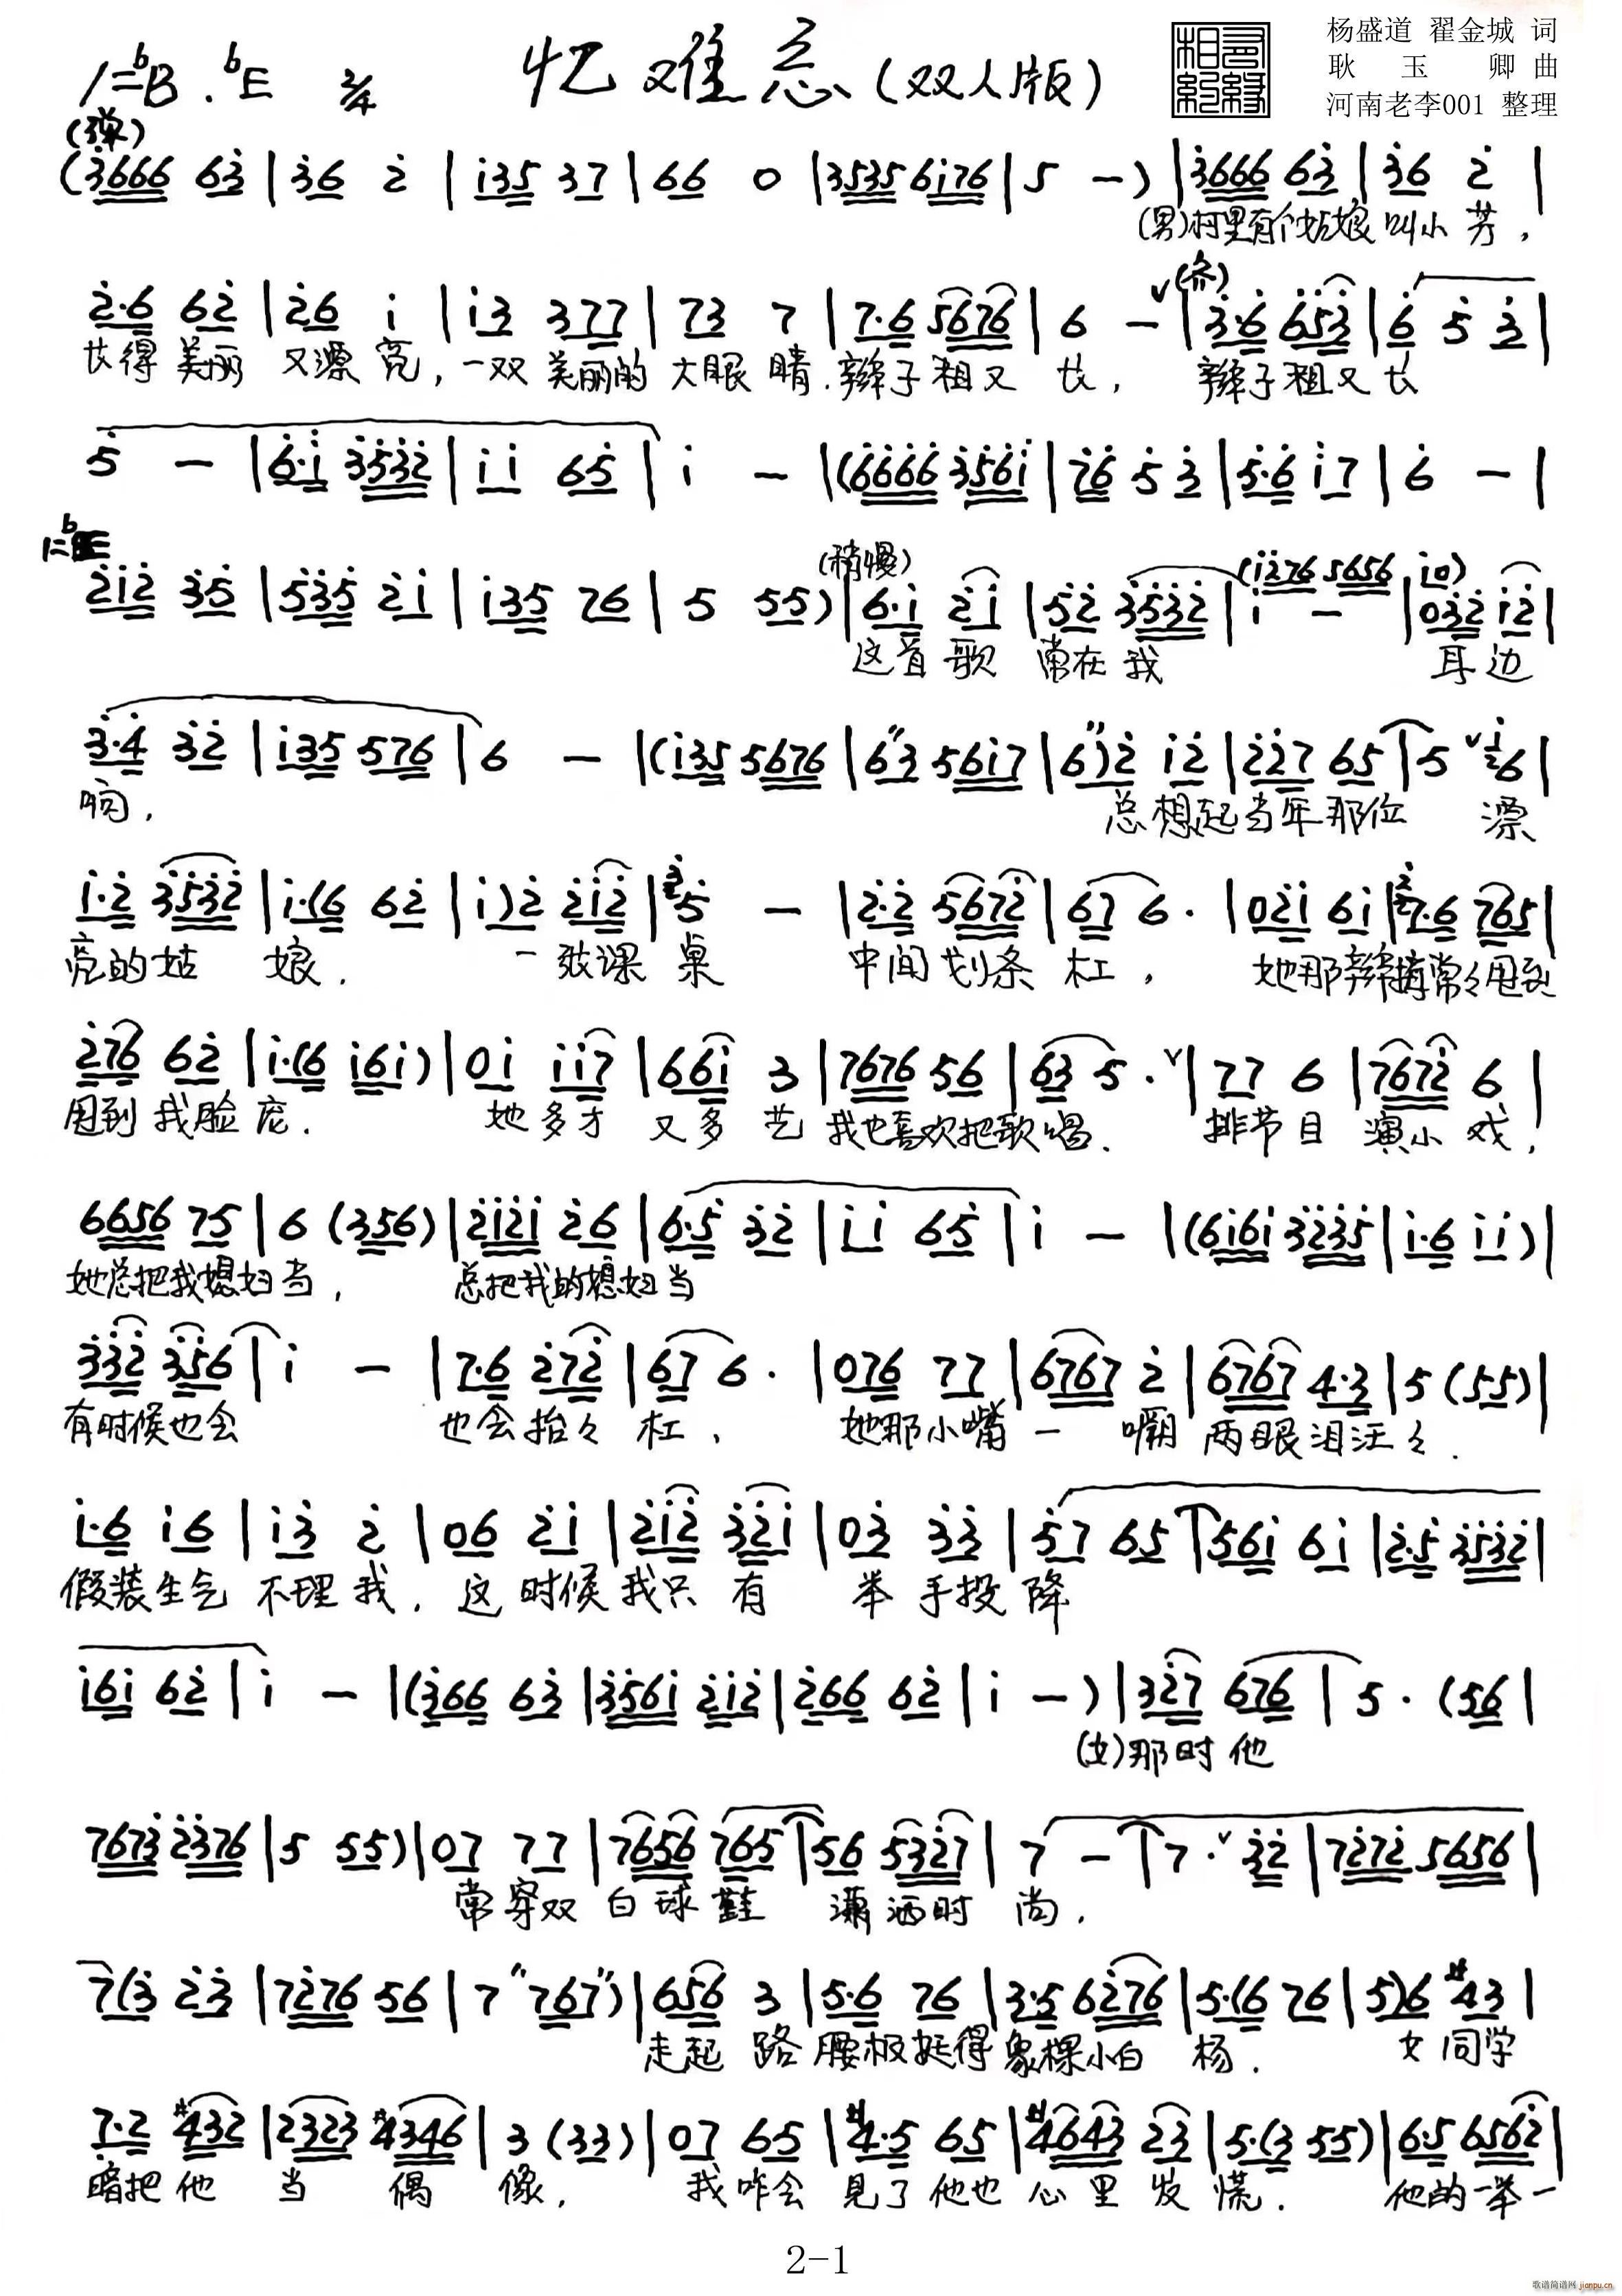 1=ᵇB . ᵇE 2/4
忆难忘(双人版)
相约 有缘
杨盛道 翟金城 词
耿 玉 卿 曲
河南老李001 整理
(弹)
(3̇666 63̇ | 3̇6 2̇ | i35 37 | 66 0 | 3535 6i76 | 5 —) | 3̇666 63̇ | 3̇6 2̇ |
(男)村里有个姑娘叫小芳,
(齐)
2̇·6 62̇ | 2̇6 i | i3 377 | 73 7 | 7·6 5676 | 6 — | 3̇·6̇ 6̇5̇3̇ | 6̇ 5̇ 3̇ |
长得美丽又漂亮,一双美丽的大眼睛.辫子粗又长, 辫子粗又长
5̇ — | 6·i 3̇5̇3̇2̇ | i i 65̇ | i — | (6̇6̇6̇6̇ 3̇5̇6̇i | 7̇6̇ 5̇ 3̇ | 5̇·6̇ i7 | 6̇ — |
1=ᵇE
(稍慢)
2̇i2̇ 3̇5̇ | 5̇3̇5̇ 2̇i | i35 76 | 5 55) | 6·i 2̇i | 5̇2̇ 3̇5̇3̇2̇ | i — | 03̇2̇ i2̇ |
(i2̇76 5656 i0)
这首歌 常在我 耳边
3̇·4̇ 3̇2̇ | i35 576 | 6 — | (i35 5676 | 6"3 56i7 | 6")2̇ i2̇ | 2̇2̇7 65 | 5 6 |
响, 总想起当年那位 漂
i·2̇ 3̇5̇3̇2̇ | i·(6 62̇ | i)2̇ 2̇i2̇ | 5̇ — | 2̇·2̇ 5672̇ | 67 6· | 02̇i 6i | 7·6 765 |
亮的姑 娘. 一张课 桌 中间划条 杠, 她那辫梢常々甩到
2̇76 62̇ | i·(6 i6i) | 0i ii7 | 66i 3 | 7676 56 | 63 5· | 77 6 | 7672̇ 6 |
甩到我脸庞. 她多才 又多艺 我也喜欢把歌唱. 排节目 演小戏,
6656 75 | 6 (356) | 2̇i2̇i 2̇6 | 6·5̇ 3̇2̇ | i i 65̇ | i — | (6i6i 3̇2̇3̇5̇ | i·6 ii) |
她总把我媳妇当, 总把我的媳妇当
3̇3̇2̇ 3̇5̇6 | i — | 7·6 2̇72̇ | 67 6· | 076 77 | 6767 2̇ | 6767 4·3 | 5 (55) |
有时候也会 也会抬々 杠, 她那小嘴一 嘣 两眼泪汪々.
i·6 i6 | i3̇ 2̇ | 06 2̇i | 2̇i2̇ 3̇2̇i | 03̇ 3̇3̇ | 5̇7 65 | 56i 6i | 2̇·5̇ 3̇5̇3̇2̇ |
假装生气 不理我. 这时候我只有 举手投降
i6i 62̇ | i — | (3̇66 63̇ | 3̇56i 2̇i2̇ | 2̇66 62̇ | i —) | 32̇7 676 | 5· (56 |
(女)那时他
7673̇ 2̇3̇76 | 5 55) | 07 77 | 7656 765 | 56 53̇2̇7 | 7 — | 7· 3̇2̇ | 72̇72̇ 5656 |
常穿双 白球鞋 潇洒时 尚.
7(3̇ 2̇3̇ | 72̇76 56 | 7 "767") | 656 3 | 5·6 76 | 3·5 62̇76 | 5·(6 76 | 5)6 #43 |
走起 路 腰板挺得象棵小白 杨. 女同学
7·2 #432 | 2323 #4346 | 3 (33) | 07 65 | #4·5 65 | #4643 23 | 5·(3 55) | 6·5 6562̇ |
暗把他 当 偶 像, 我咋会 见了他也 心里发慌. 他的一举一
2-1
歌谱简谱网 jianpu.cn